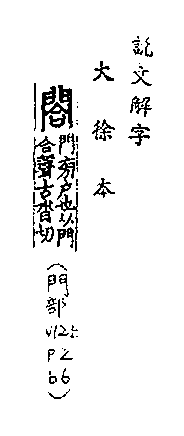 說文解字
大徐本
閤
門旁戶也从門
合聲古沓切
(門部
P2
66)